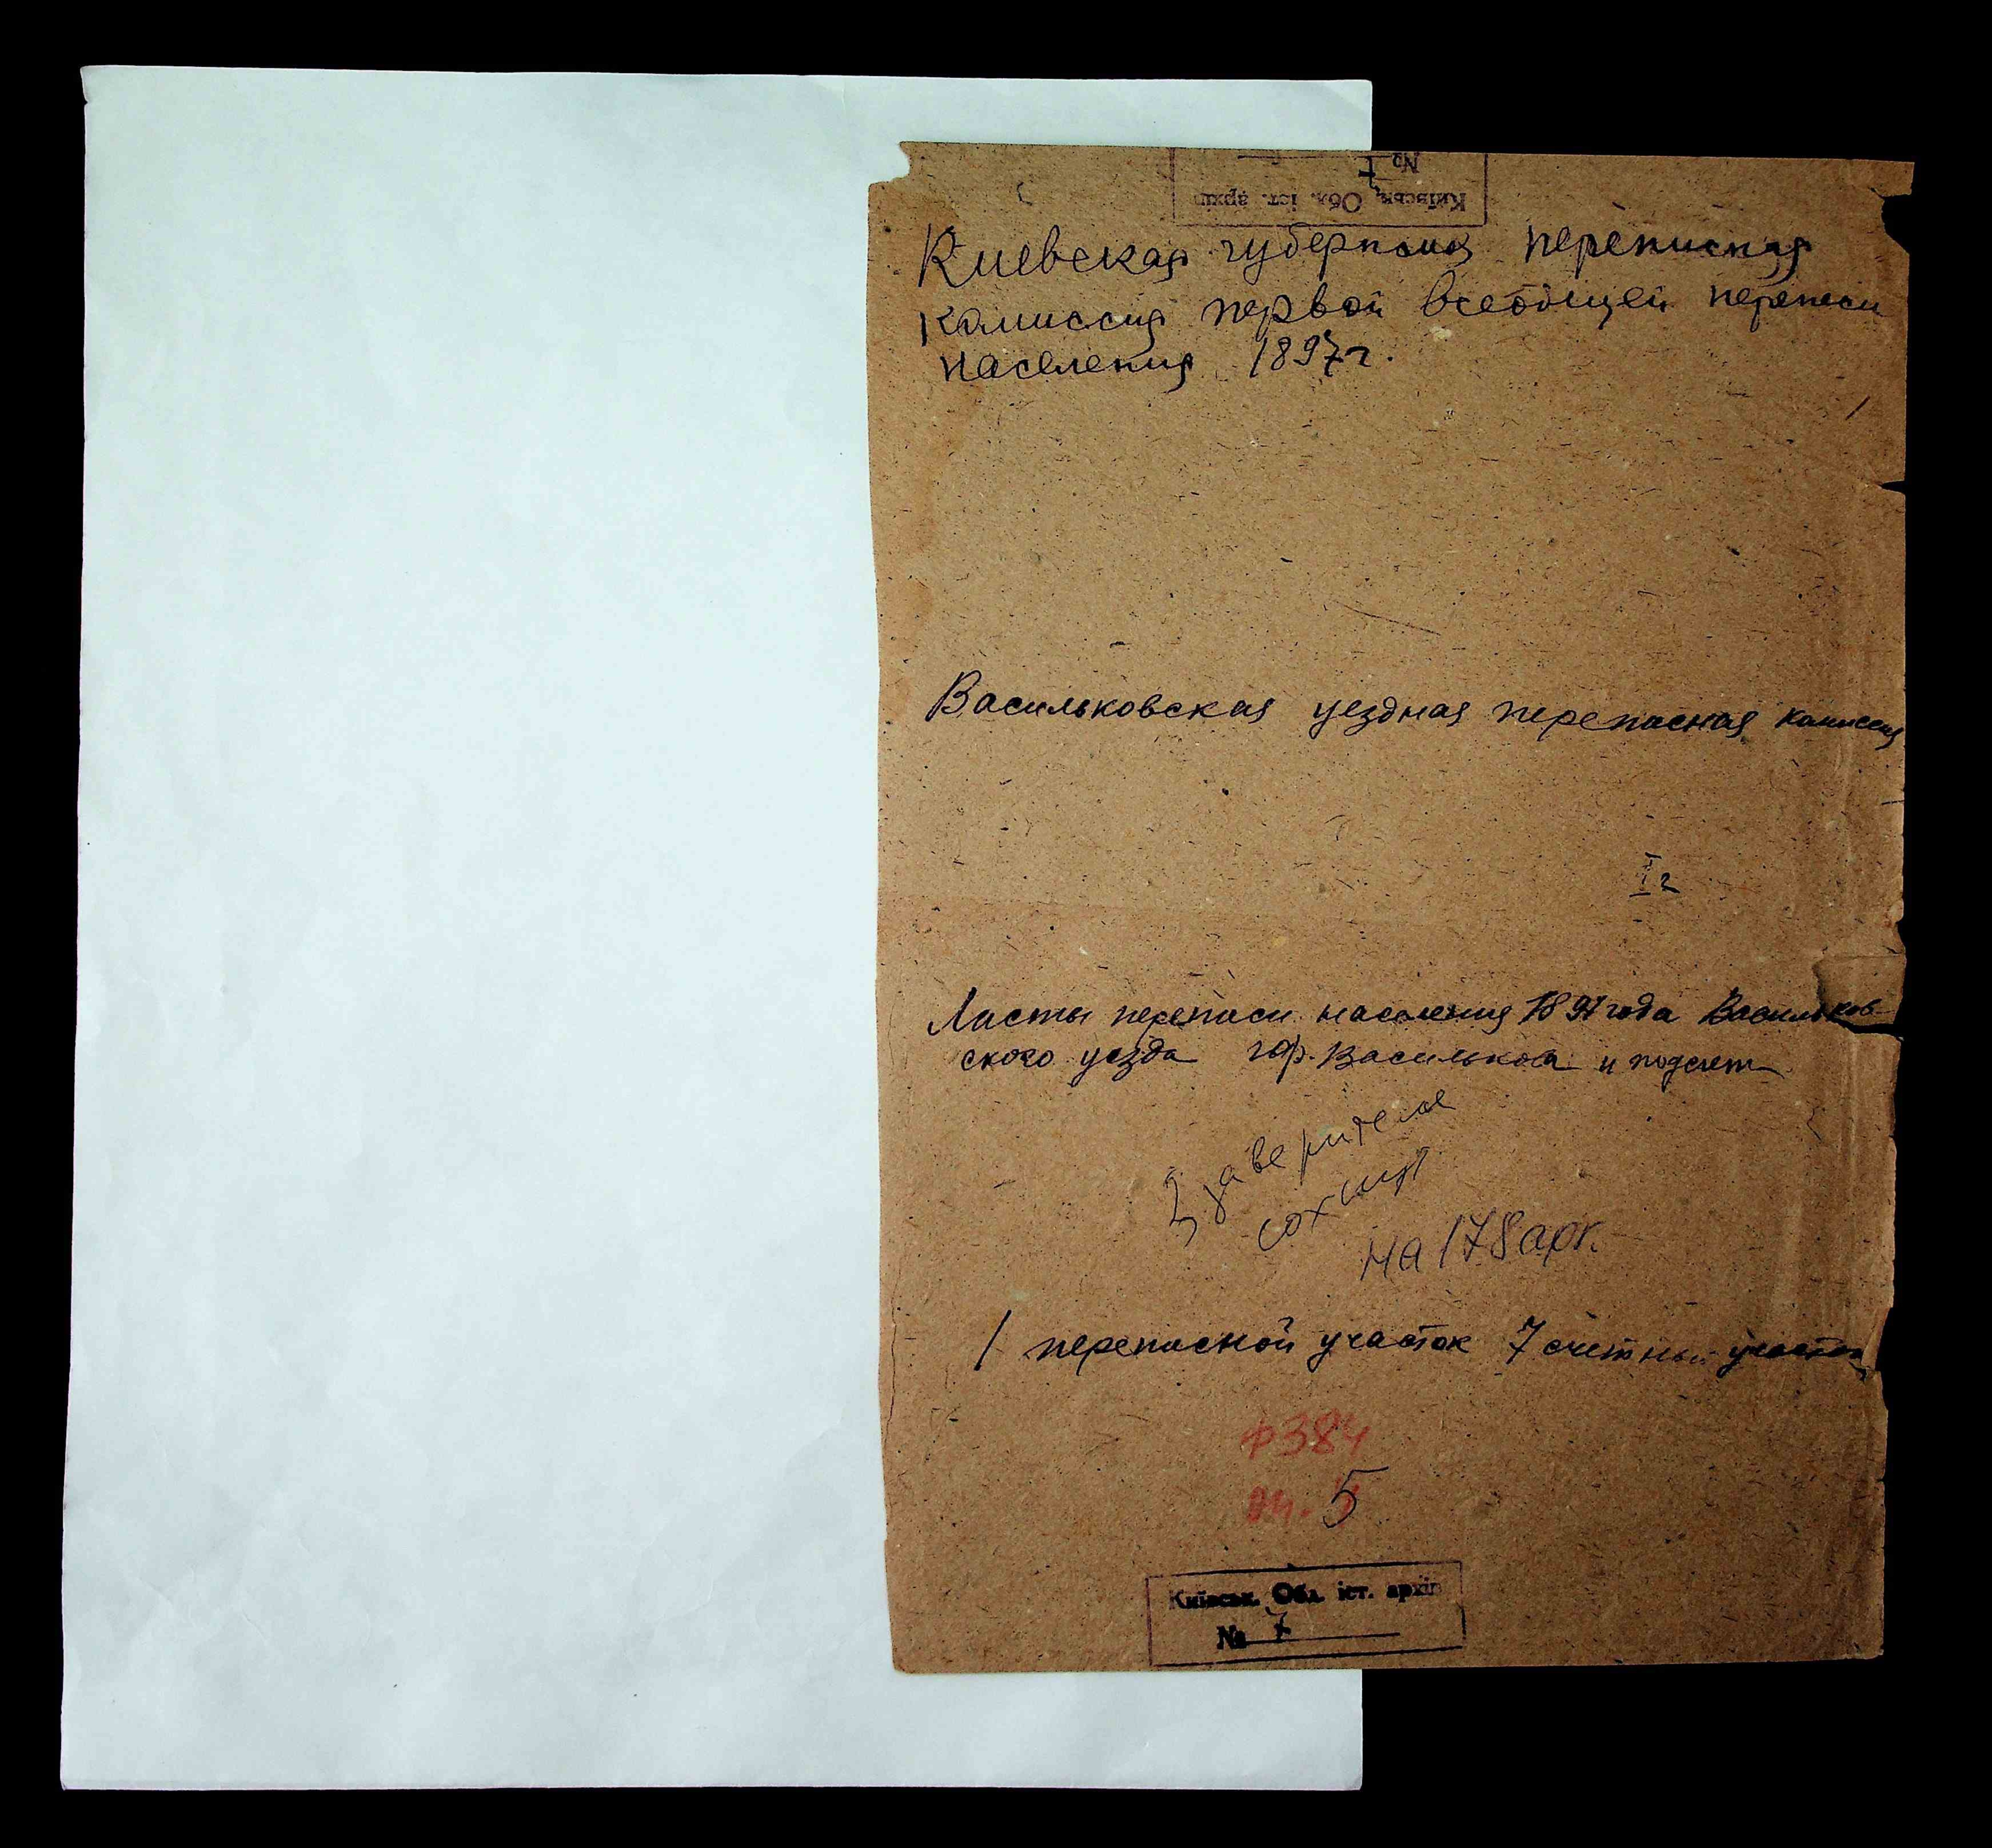 Київськ. Обл. іст. архів
№ 7
Киевская губернская переписная
комиссия первой всеобщей переписи
населения 1897г.
Васильковская уездная переписная комиссия
I г
Листы переписи населения 1897 года Васильков-
ского уезда гор. Василькова и подсчет
на 178 арк.
1 переписной участок 7 счетный участок
ф 384
оп. 5
Київськ. Обл. іст. архів
№ 7